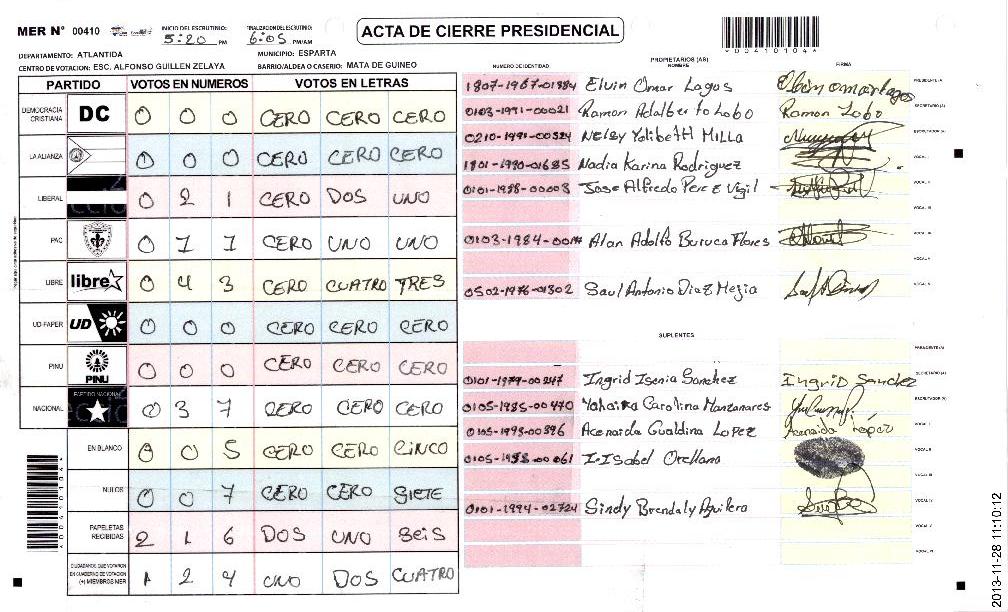 MER N° 00410
INICIO DEL ESCRUTINIO: 5:20 PM
FINALIZACION DEL ESCRUTINIO: 6:05 PM/AM
ACTA DE CIERRE PRESIDENCIAL
*00410104*
DEPARTAMENTO: ATLANTIDA
MUNICIPIO: ESPARTA
CENTRO DE VOTACION: ESC. ALFONSO GUILLEN ZELAYA
BARRIO/ALDEA O CASERIO: MATA DE GUINEO
PARTIDO VOTOS EN NUMEROS VOTOS EN LETRAS
DEMOCRACIA CRISTIANA DC 0 0 0 CERO CERO CERO
LA ALIANZA 0 0 0 CERO CERO CERO
LIBERAL 0 2 1 CERO DOS UNO
PAC 0 1 1 CERO UNO UNO
LIBRE libre 0 4 3 CERO CUATRO TRES
UD-FAPER UD 0 0 0 CERO CERO CERO
PINU PINU 0 0 0 CERO CERO CERO
NACIONAL PARTIDO NACIONAL 0 3 7 CERO CERO CERO
EN BLANCO 0 0 5 CERO CERO CINCO
NULOS 0 0 7 CERO CERO SIETE
PAPELETAS RECIBIDAS 2 1 6 DOS UNO SEIS
CIUDADANOS QUE VOTARON EN CUADERNO DE VOTACION (+) MIEMBROS MER 1 2 4 UNO DOS CUATRO
PROPIETARIOS (AS)
NUMERO DE IDENTIDAD NOMBRE FIRMA
1807-1967-01884 Elvin Omar Lagos PRESIDENTE (A)
0103-1991-00021 Ramon Adalberto Lobo Ramon Lobo SECRETARIO (A)
0210-1991-00324 Nelsy Yolibeth Milla ESCRUTADOR (A)
1801-1990-01685 Nadia Karina Rodriguez VOCAL I
0101-1988-00008 Jose Alfredo Perez Vigil VOCAL II
VOCAL III
0103-1984-00 Alan Adolfo Buruca Flores
VOCAL V
0502-1976-01302 Saul Antonio Diaz Mejia
SUPLENTES
PRESIDENTE (A)
0101-1979-00247 Ingrid Isenia Sanchez Ingrid Sanchez SECRETARIO (A)
0105-1985-00470 Yohaira Carolina Manzanares ESCRUTADOR (A)
0105-1993-00396 Acenaida Gualdina Lopez Acenaida López VOCAL I
0105-1988-00061 I.Isabel Orellana VOCAL II
VOCAL III
0101-1994-02724 Sindy Brendaly Aguilera VOCAL IV
VOCAL V
VOCAL VI
2013-11-28 11:10:12